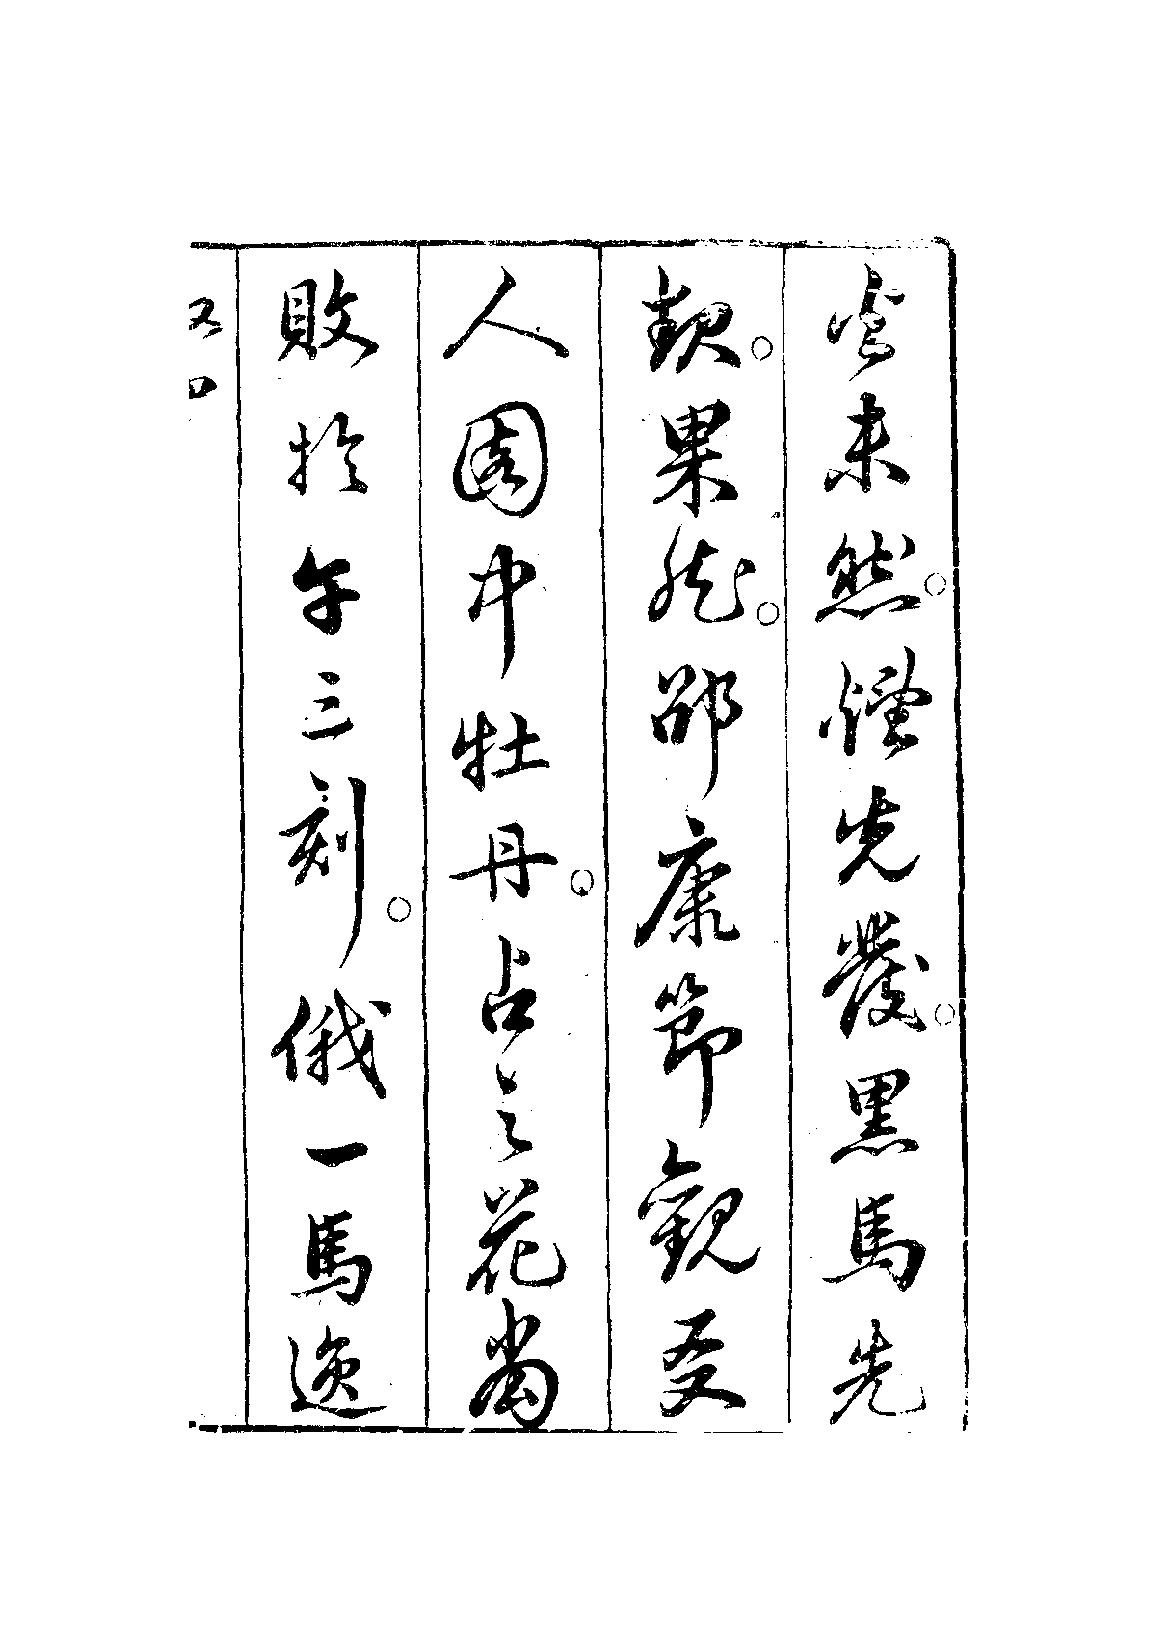 未然煙先發黑馬先
果然邵康節觀友
人園中牡丹占之花當
敗於午三刻俄一馬逸